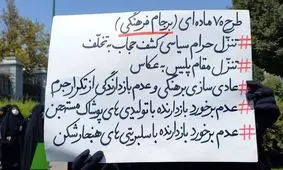 طرح ۷۰ ماده‌ای (برجام فرهنگی)
# تنزّل حرام سیاسی کشف حجاب به تخلف
# تنزل مقام پلیس به عکاس
# عادی سازی برهنگی و عدم بازدارندگی از تکرار جرم
# عدم برخورد بازدارنده با تولیدی های پوشاک مستهجن
# عدم برخورد بازدارنده با سلبریتی های هنجارشکن